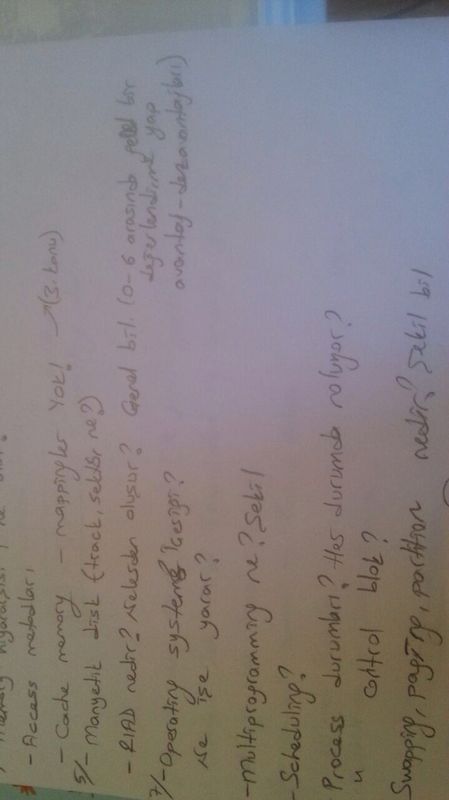 - Access metodları,
- Cache memory - mappingler YOK! → (3. konu)
5/- Manyetik disk (track, sektör ne?)
- RIAD nedir? Nelerden oluşur? Genel bil. (0-6 arasında genel bir
değerlendirme yap
avantaj-dezavantajları)
7/- Operating system? Çeşidi?
Ne işe yarar?
- Multiprogramming ne? Şekil
- Scheduling?
Process durumları? Her durumda noluyor?
" control blok?
Swapping, paging, partition nedir? Şekil bil